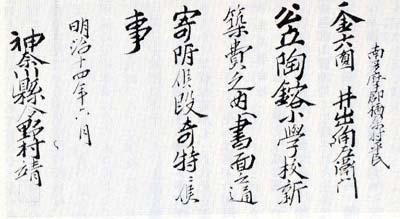 南多摩郡楢原村平民
金六圓 井出左衛門
公立陶鎔小學校新
築費之内書面之通
寄附候段奇特ニ候
事
明治十四年六月
神奈川縣令野村靖